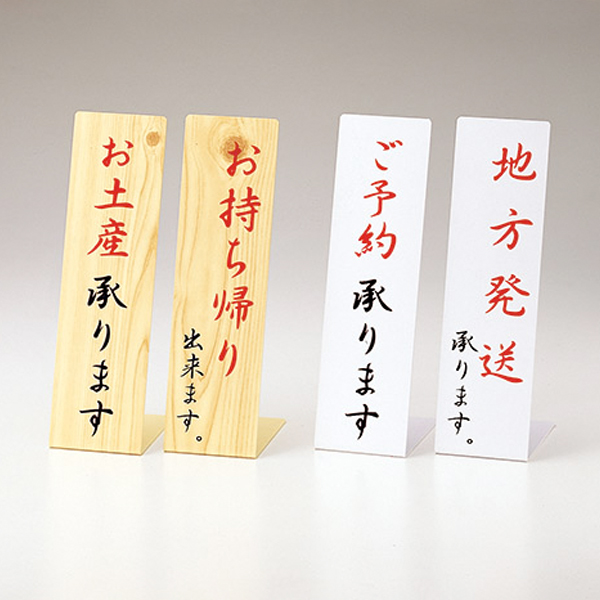 お土産承ります
お持ち帰り
出来ます。
ご予約承ります
地方発送
承ります。